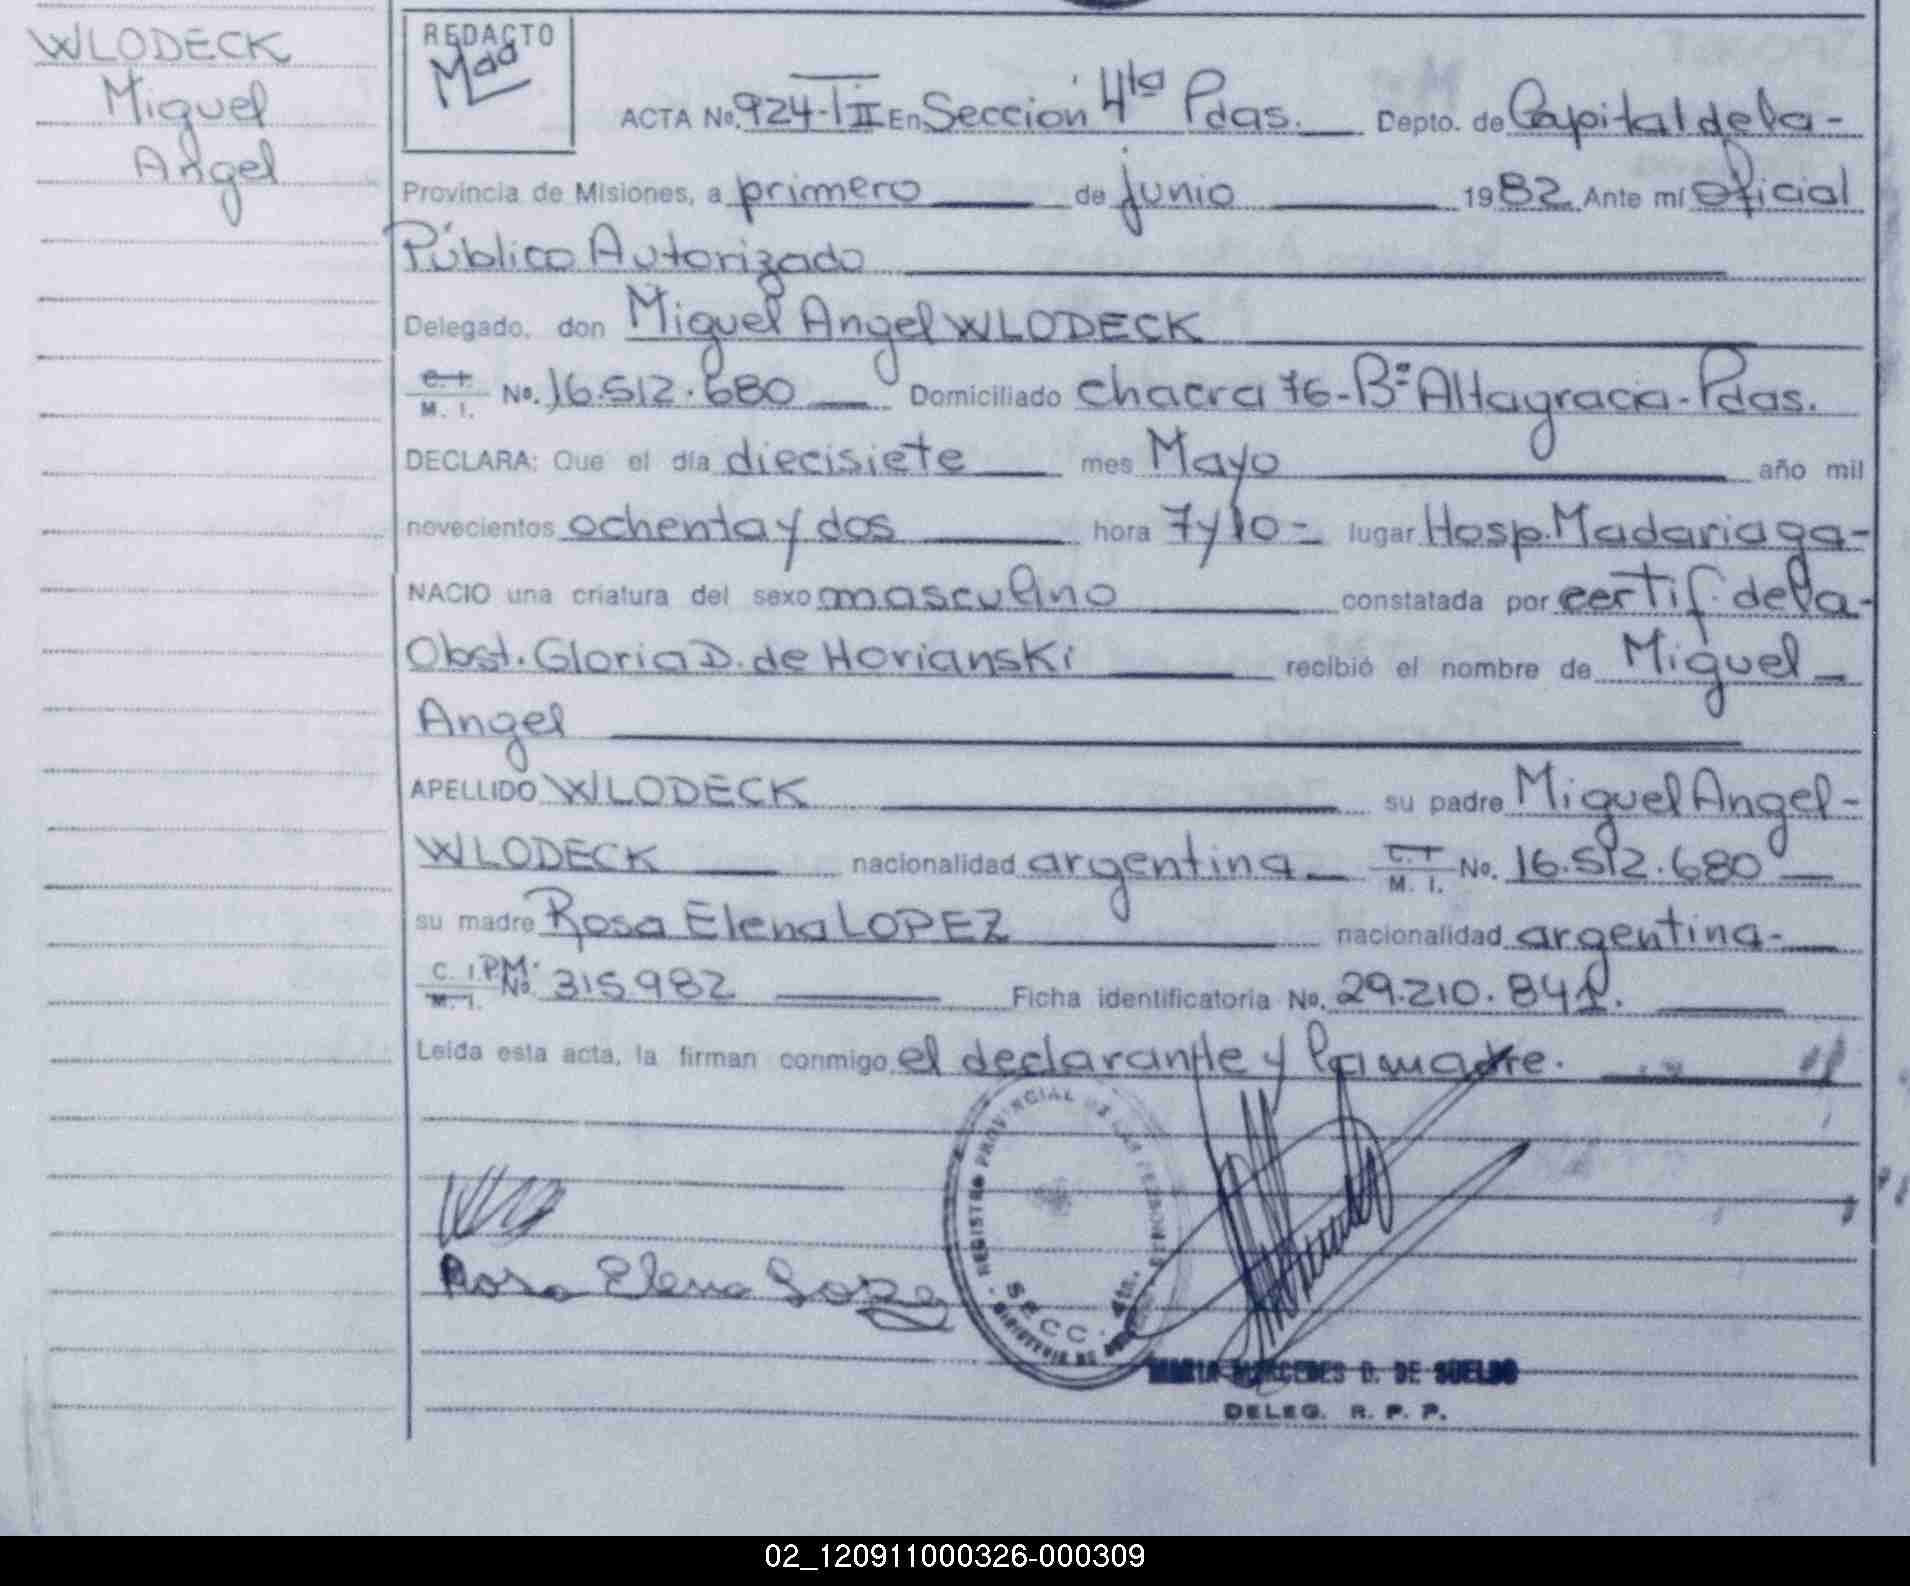 WLODECK
Miguel
Angel
REDACTO
ACTA No. 924-T II En Sección 4ta Pdas. Depto. de Capital de la-
Provincia de Misiones, a primero de junio 1982 Ante mí oficial
Público Autorizado
Delegado, don Miguel Angel WLODECK
C. I. M. I. No. 16.512.680 Domiciliado chacra 76-Bº Altagracia-Pdas.
DECLARA: Que el día diecisiete mes Mayo año mil
novecientos ochenta y dos hora 7 y 10- lugar Hosp. Madariaga-
NACIO una criatura del sexo masculino constatada por certif. de la-
Obst. Gloria D. de Horianski recibió el nombre de Miguel
Angel
APELLIDO WLODECK su padre Miguel Angel-
WLODECK nacionalidad argentina C. I. M. I. No. 16.512.680
su madre Rosa Elena LOPEZ nacionalidad argentina-
C. I. P.M. M. I. No. 315.982 Ficha identificatoria No. 29.210.841.
Leída esta acta, la firman conmigo el declarante y la madre.
REGISTRO PROVINCIAL DE LAS PERSONAS
SECC. 4ta.
Rosa Elena Lopez
MARIA MERCEDES D. DE SUELDO
DELEG. R. P. P.
02_120911000326-000309